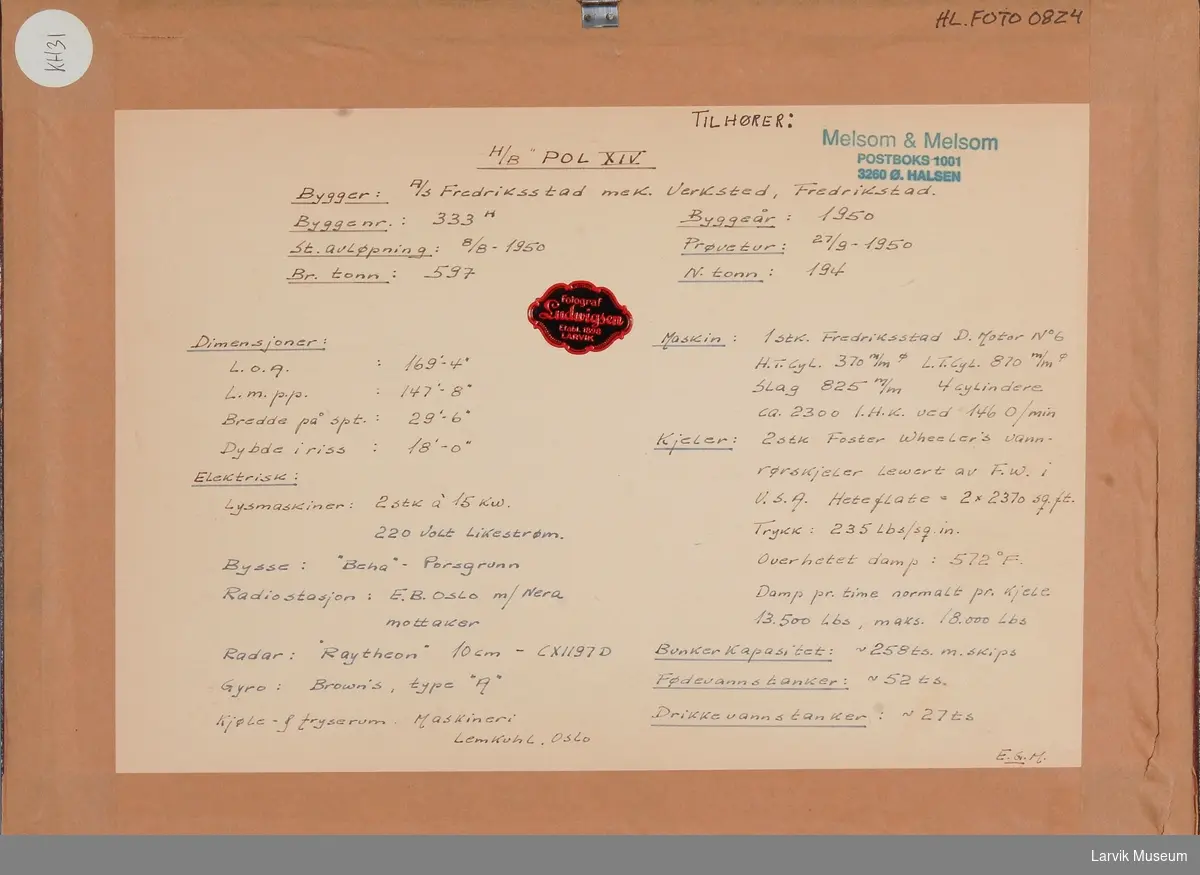 HL.FOTO 0824
KH31
TILHØRER:
Melsom & Melsom
POSTBOKS 1001
3260 Ø. HALSEN
H/B " POL XIV
Bygger: A/S Fredriksstad mek. Verksted, Fredrikstad.
Byggenr.: 333 H
Byggeår: 1950
St. avløpning: 8/8-1950
Prøvetur: 27/9-1950
Br. tonn: 597
N. tonn: 194
Fotograf
Ludwigsen
Etabl. 1898
LARVIK
Dimensjoner:
L.o.a. : 169'-4"
L.m.p.p. : 147'-8"
Bredde på spt. : 29'-6"
Dybde i riss : 18'-0"
Elektrisk:
Lysmaskiner: 2 stk à 15 kw.
220 Volt Likestrøm.
Bysse: "Beha" - Porsgrunn
Radiostasjon: E.B. Oslo m/ Nera
mottaker
Radar: "Raytheon" 10 cm - CX1197D
Gyro: Brown's, type "A"
Kjøle- & fryserum. Maskineri
Lemkuhl, Oslo
Maskin: 1 stk. Fredriksstad D. Motor No 6
H.T. Cyl. 370 m/m φ L.T. Cyl. 870 m/m φ
Slag 825 m/m 4 cylindere
ca. 2300 I.H.K. ved 146 O/min
Kjeler: 2 stk Foster Wheeler's vann-
rørskjeler Levert av F.W. i
U.S.A. Heteflate = 2 x 2370 sq.ft.
Trykk: 235 Lbs/sq.in.
Overhetet damp: 572°F.
Damp pr. time normalt pr. kjele
13.500 Lbs, maks. 18.000 Lbs
Bunkerkapasitet: ~258 ts. m. skips
Fødevannstanker: ~52 ts.
Drikkevannstanker: ~27 ts
E.G.M.
Larvik Museum